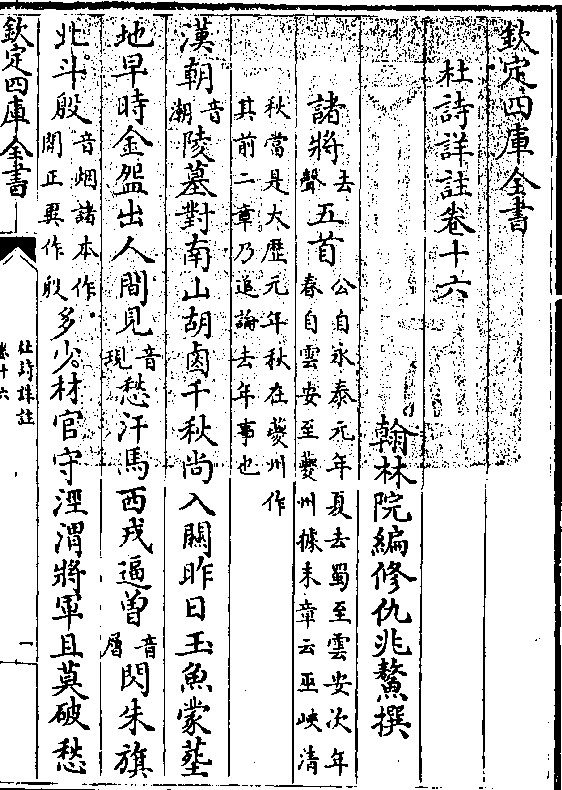 欽定四庫全書
杜詩詳註卷十六
翰林院編修仇兆鰲撰
諸將去聲五首
公自永泰元年夏去蜀至雲安次年
春自雲安至夔州據末章云巫峽清
秋當是大厯元年秋在夔州作
其前二章乃追論去年事也
漢朝音潮陵墓對南山胡鹵千秋尚入關昨日玉魚蒙塟
地早時金盌出人間見音現愁汗馬西戎逼曽音層閃朱旗
北斗殷音烟諸本作閒正異作殷多少材官守涇渭將軍且莫破愁
欽定四庫全書
杜詩詳註
卷十六
一